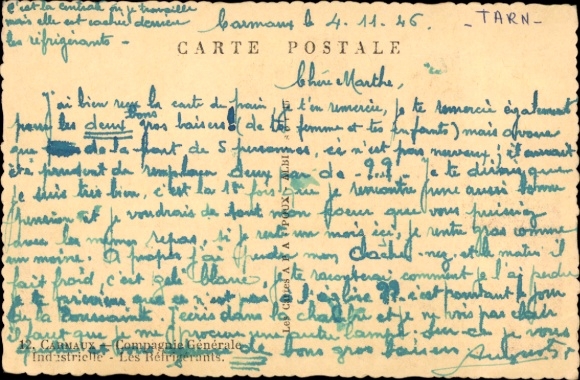 c'est la centrale où je travaille
mais elle est cachée derrière
les réfrigérants -
Carmaux le 4.11.46
- TARN -
CARTE POSTALE
Chère Marthe,
J'ai bien reçu la carte de pain, je t'en remercie, je te remercie également
pour les deux bons gros baisers! (de ta femme et tes enfants) mais avoue
que de la part de 5 personnes, ce n'est pas nerveux! il aurait
été prudent de remplacer deux par de - ?.? - Je te dirai que
je suis très bien, c'est la 1ère fois que je rencontre une aussi bonne
pension et je voudrais de tout mon coeur que vous puissiez
avoir les mêmes repas, si je reste un mois ici, je rentre gras comme
un moine. A propos j'ai perdu mon cache-nez, et le matin il
fait froid, c'est gelé blanc, je te raconterai comment je l'ai perdu
je te préviens que ce n'est pas à l'église ?? c'est pourtant le jour
de la Toussaint. J'écris dans la chambre et je ne vois pas clair
il faut que je me procure une autre lampe. Sur-ce je vous
de bons gros baisers
12. CARMAUX — Compagnie Générale
Industrielle - Les Réfrigérants.